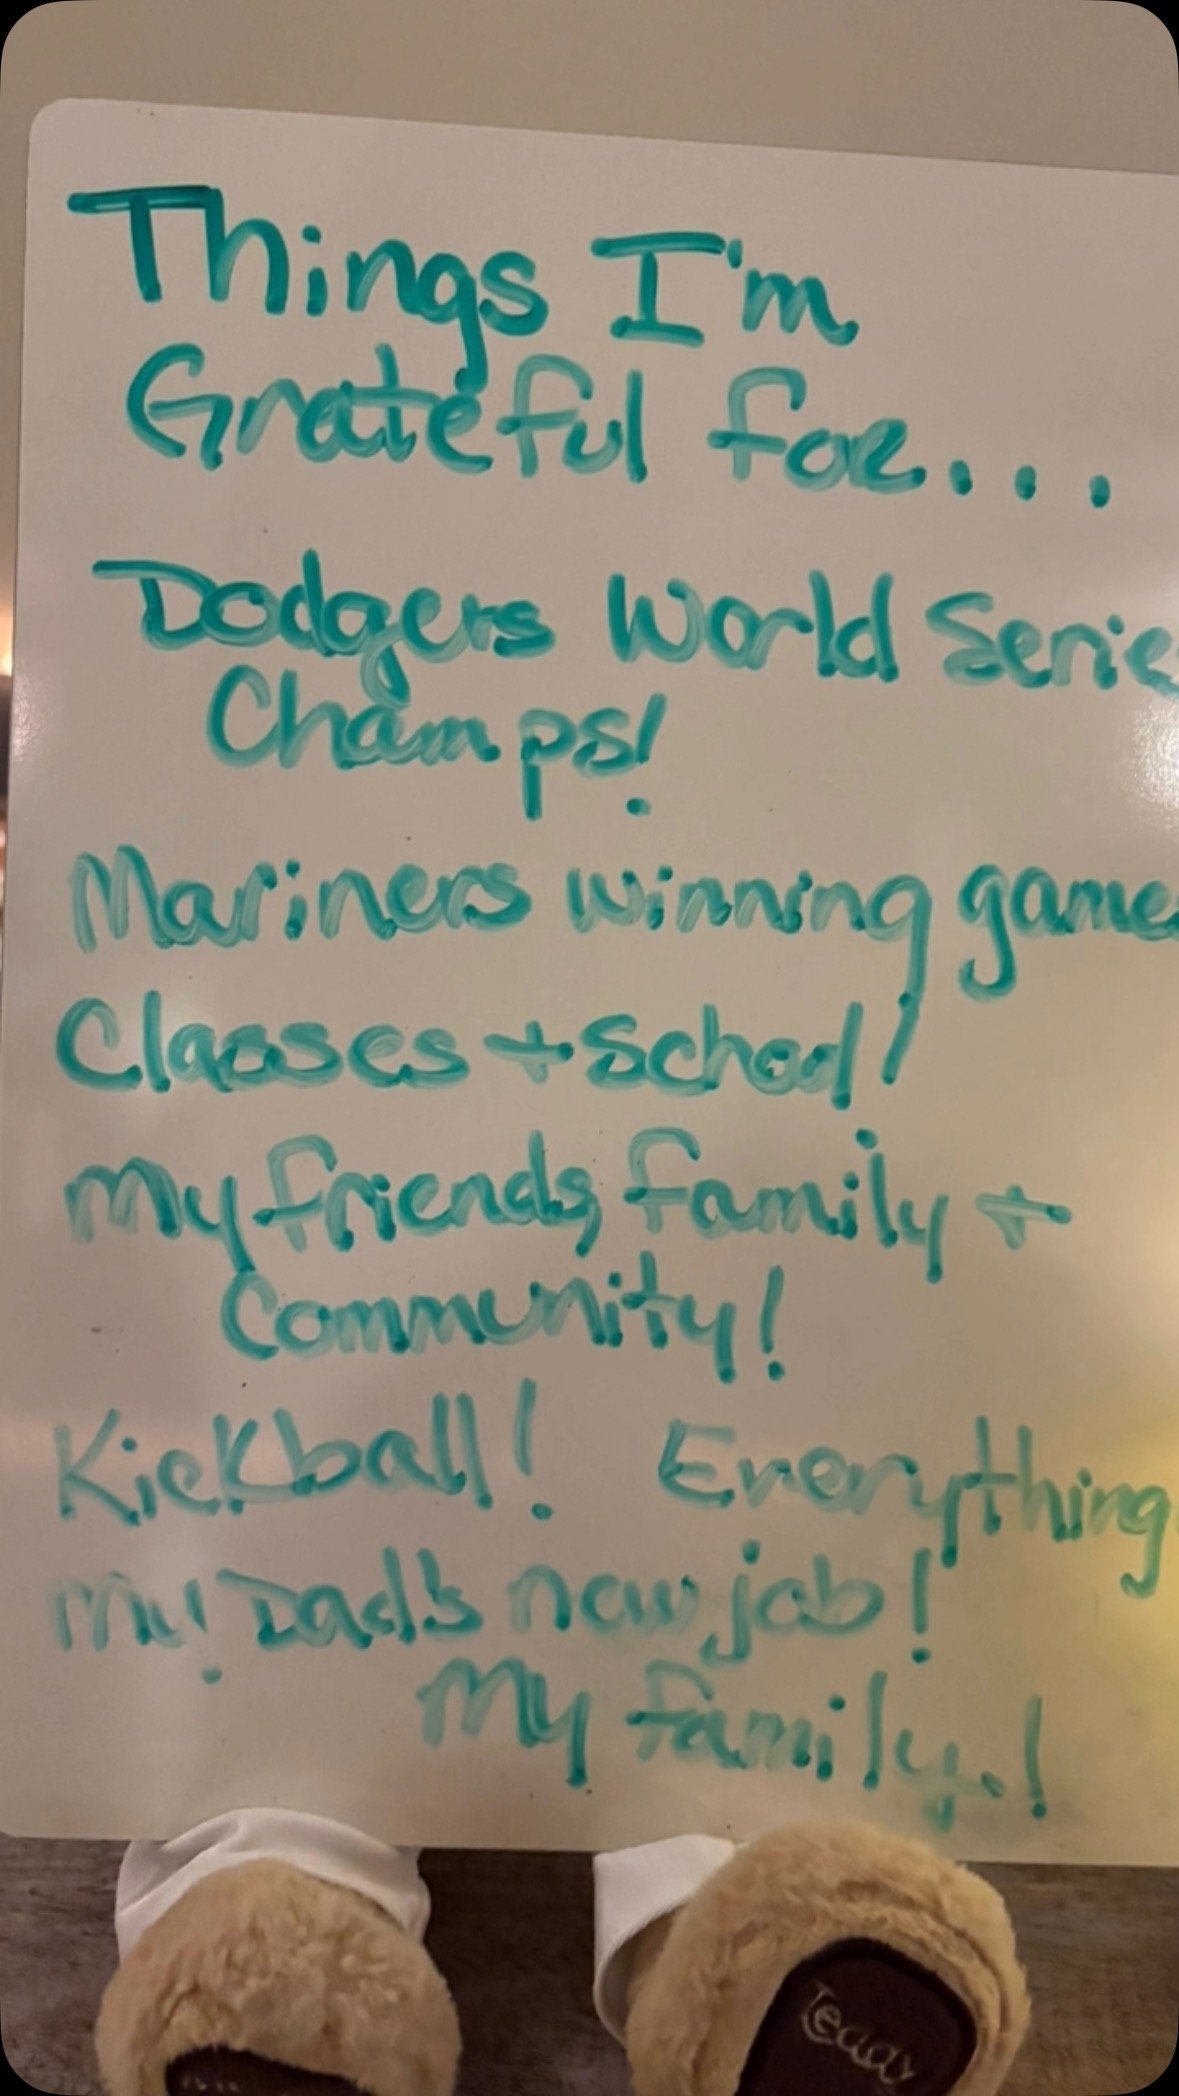 Things I'm
Grateful for...
Dodgers World Serie
Champs!
Mariners winning game
Classes + School!
My friends, family +
Community!
Kickball! Everything
my Dad's new job!
My family!
Teddy